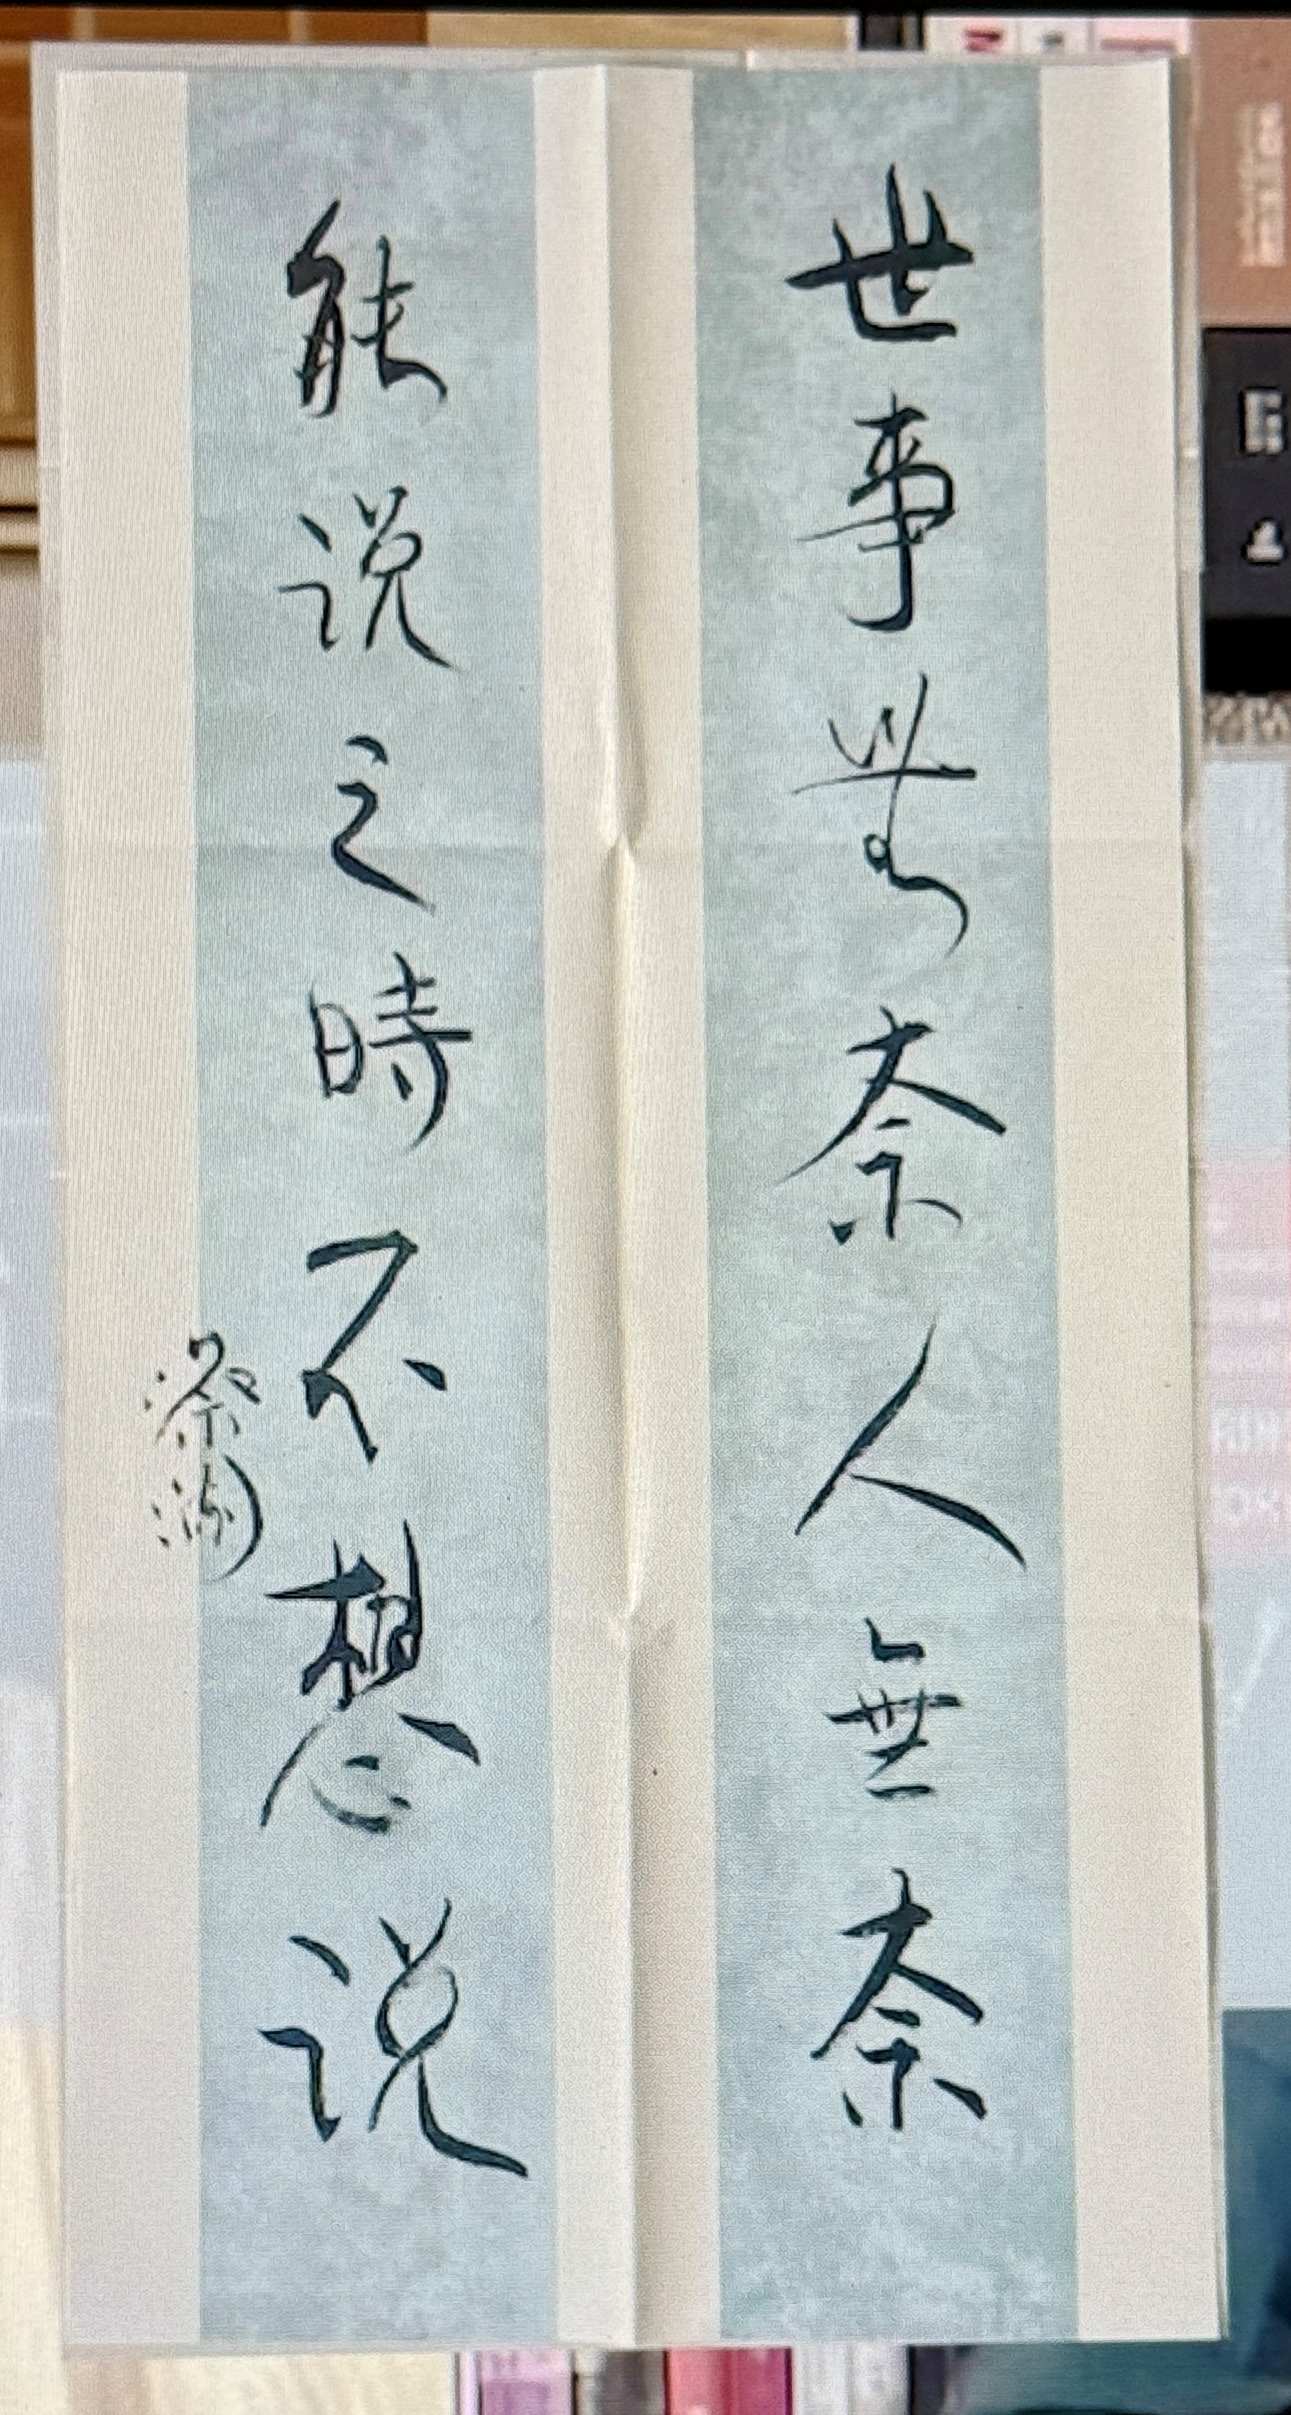 世事無奈人無奈
能说之時不想说
蔡瀾